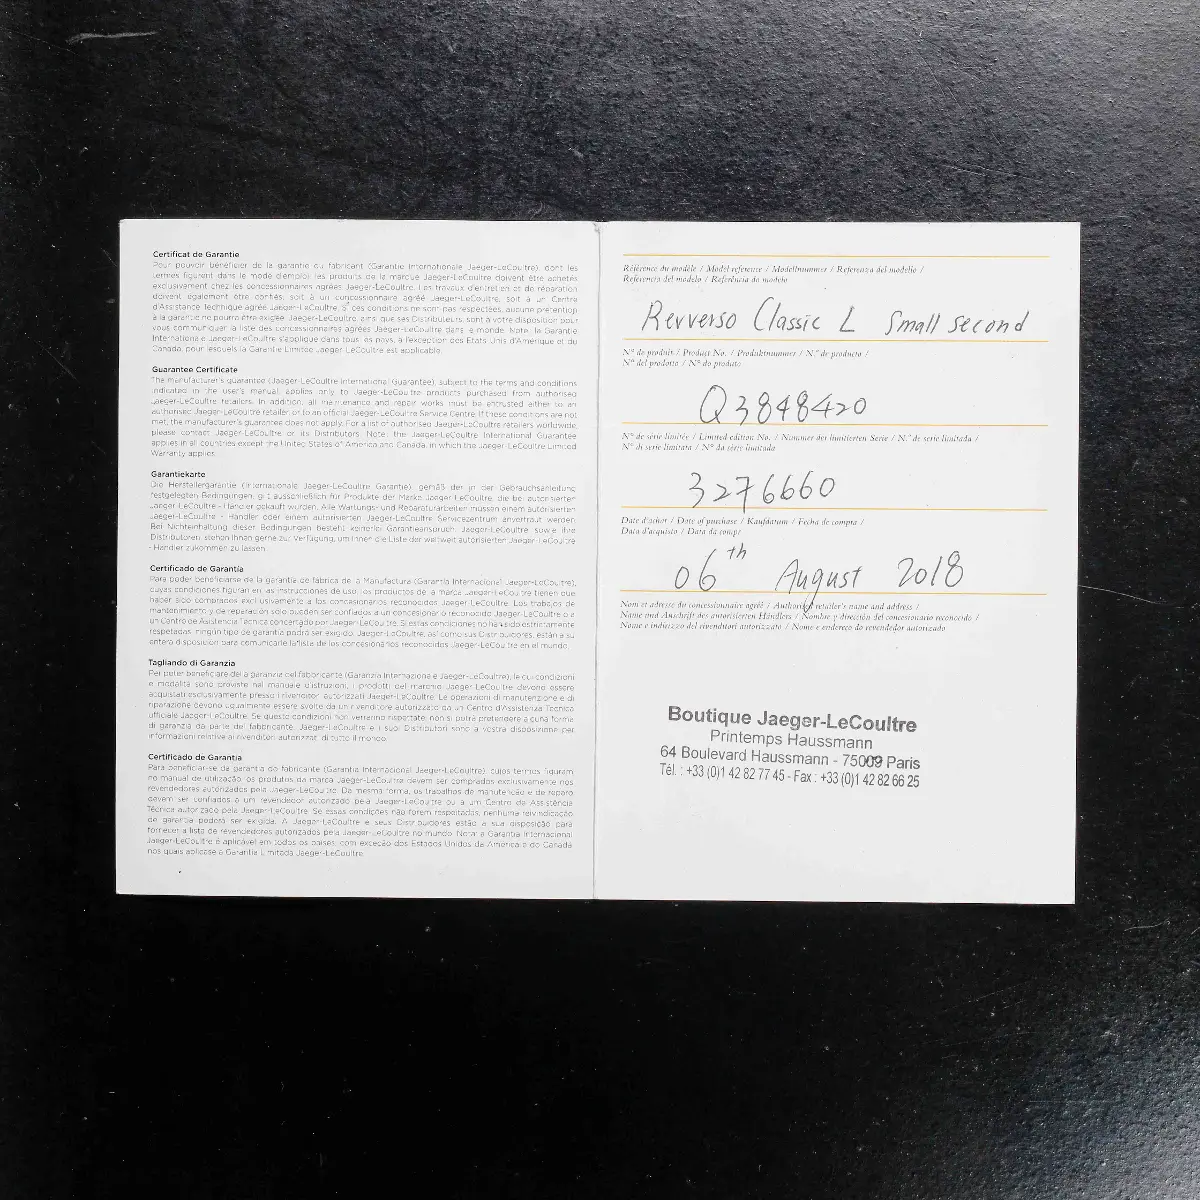 Certificat de Garantie
Pour pouvoir bénéficier de la garantie du fabricant (Garantie Internationale Jaeger-LeCoultre), dont les
termes figurent dans le mode d'emploi, les produits de la marque Jaeger-LeCoultre doivent être achetés
exclusivement chez les concessionnaires agréés Jaeger-LeCoultre. Les travaux d'entretien et de réparation
doivent également être confiés, soit à un concessionnaire agréé Jaeger-LeCoultre, soit à un Centre
d'Assistance Technique agréé Jaeger-LeCoultre. Si ces conditions ne sont pas respectées, aucune prétention
à la garantie ne pourra être exigée. Jaeger-LeCoultre ainsi que ses Distributeurs, sont à votre disposition pour
vous communiquer la liste des concessionnaires agréés Jaeger-LeCoultre dans le monde. Note: la Garantie
Internationale Jaeger-LeCoultre s'applique dans tous les pays, à l'exception des Etats Unis d'Amérique et du
Canada, pour lesquels la Garantie Limitée Jaeger-LeCoultre est applicable.
Guarantee Certificate
The manufacturer's guarantee (Jaeger-LeCoultre International Guarantee), subject to the terms and conditions
indicated in the user's manual, applies only to Jaeger-LeCoultre products purchased from authorised
Jaeger-LeCoultre retailers. In addition, all maintenance and repair works must be entrusted either to an
authorised Jaeger-LeCoultre retailer, or to an official Jaeger-LeCoultre Service Centre. If these conditions are not
met, the manufacturer's guarantee does not apply. For a list of authorised Jaeger-LeCoultre retailers worldwide,
please contact Jaeger-LeCoultre or its Distributors. Note: the Jaeger-LeCoultre International Guarantee
applies in all countries except the United States of America and Canada, in which the Jaeger-LeCoultre Limited
Warranty applies.
Garantiekarte
Die Herstellergarantie (Internationale Jaeger-LeCoultre Garantie), gemäß der in der Gebrauchsanleitung
festgelegten Bedingungen, gilt ausschließlich für Produkte der Marke Jaeger-LeCoultre, die bei autorisierten
Jaeger-LeCoultre - Händler gekauft wurden. Alle Wartungs- und Reparaturarbeiten müssen einem autorisierten
Jaeger-LeCoultre - Händler oder einem autorisierten Jaeger-LeCoultre Servicezentrum anvertraut werden.
Bei Nichteinhaltung dieser Bedingungen besteht keinerlei Garantieanspruch. Jaeger-LeCoultre sowie ihre
Distributoren, stehen Ihnen gerne zur Verfügung, um Ihnen die Liste der weltweit autorisierten Jaeger-LeCoultre
- Händler zukommen zu lassen.
Certificado de Garantía
Para poder beneficiarse de la garantía de fábrica de la Manufactura (Garantía Internacional Jaeger-LeCoultre),
cuyas condiciones figuran en las instrucciones de uso, los productos de la marca Jaeger-LeCoultre tienen que
haber sido comprados exclusivamente a los concesionarios reconocidos Jaeger-LeCoultre. Los trabajos de
mantenimiento y de reparación sólo pueden ser confiados a un concesionario reconocido Jaeger-LeCoultre o a
un Centro de Asistencia Técnica concertado por Jaeger-LeCoultre. Si estas condiciones no han sido estrictamente
respetadas, ningún tipo de garantía podrá ser exigido. Jaeger-LeCoultre, así como sus Distribuidores, están a su
entera disposición para comunicarle la lista de los concesionarios reconocidos Jaeger-LeCoultre en el mundo.
Tagliando di Garanzia
Per poter beneficiare della garanzia del fabbricante (Garanzia Internazionale Jaeger-LeCoultre), le cui condizioni
e modalità sono provviste nel manuale d'istruzioni, i prodotti del marchio Jaeger-LeCoultre devono essere
acquistati esclusivamente presso i rivenditori autorizzati Jaeger-LeCoultre. Le operazioni di manutenzione e di
riparazione devono ugualmente essere svolte da un rivenditore autorizzato o da un Centro d'Assistenza Tecnica
ufficiale Jaeger-LeCoultre. Se queste condizioni non verranno rispettate, non si potrà pretendere alcuna forma
di garanzia da parte del fabbricante. Jaeger-LeCoultre e i suoi Distributori sono a vostra disposizione per
informazioni relative ai rivenditori autorizzati di tutto il mondo.
Certificado de Garantia
Para beneficiar-se da garantia do fabricante (Garantia Internacional Jaeger-LeCoultre), cujos termos figuram
no manual de utilização, os produtos da marca Jaeger-LeCoultre devem ser comprados exclusivamente nos
revendedores autorizados pela Jaeger-LeCoultre. Da mesma forma, os trabalhos de manutenção e de reparo
devem ser confiados a um revendedor autorizado pela Jaeger-LeCoultre ou a um Centro de Assistência
Técnica autorizado pela Jaeger-LeCoultre. Se essas condições não forem respeitadas, nenhuma reivindicação
de garantia poderá ser exigida. A Jaeger-LeCoultre e seus Distribuidores estão à sua disposição para
fornecer a lista de revendedores autorizados pela Jaeger-LeCoultre no mundo. Nota: a Garantia Internacional
Jaeger-LeCoultre é aplicável em todos os países, com exceção dos Estados Unidos da América e do Canadá
nos quais aplica-se a Garantia Limitada Jaeger-LeCoultre.
Référence du modèle / Model reference / Modellnummer / Referenza del modello /
Referencia del modelo / Referência do modelo
Revverso Classic L Small second
N° de produit / Product No. / Produktnummer / N.° de producto /
N° del prodotto / N° do produto
Q3848420
N° de série limitée / Limited edition No. / Nummer der limitierten Serie / N.° de serie limitada /
N° di serie limitata / N° da série limitada
3276660
Date d'achat / Date of purchase / Kaufdatum / Fecha de compra /
Data d'acquisto / Data da compr
06th August 2018
Nom et adresse du concessionnaire agréé / Authorized retailer's name and address /
Name und Anschrift des autorisierten Händlers / Nombre y dirección del concesionario reconocido /
Nome e indirizzo del rivenditori autorizzato / Nome e endereço do revendedor autorizado
Boutique Jaeger-LeCoultre
Printemps Haussmann
64 Boulevard Haussmann - 75009 Paris
Tél. : +33 (0)1 42 82 77 45 - Fax : +33 (0)1 42 82 66 25